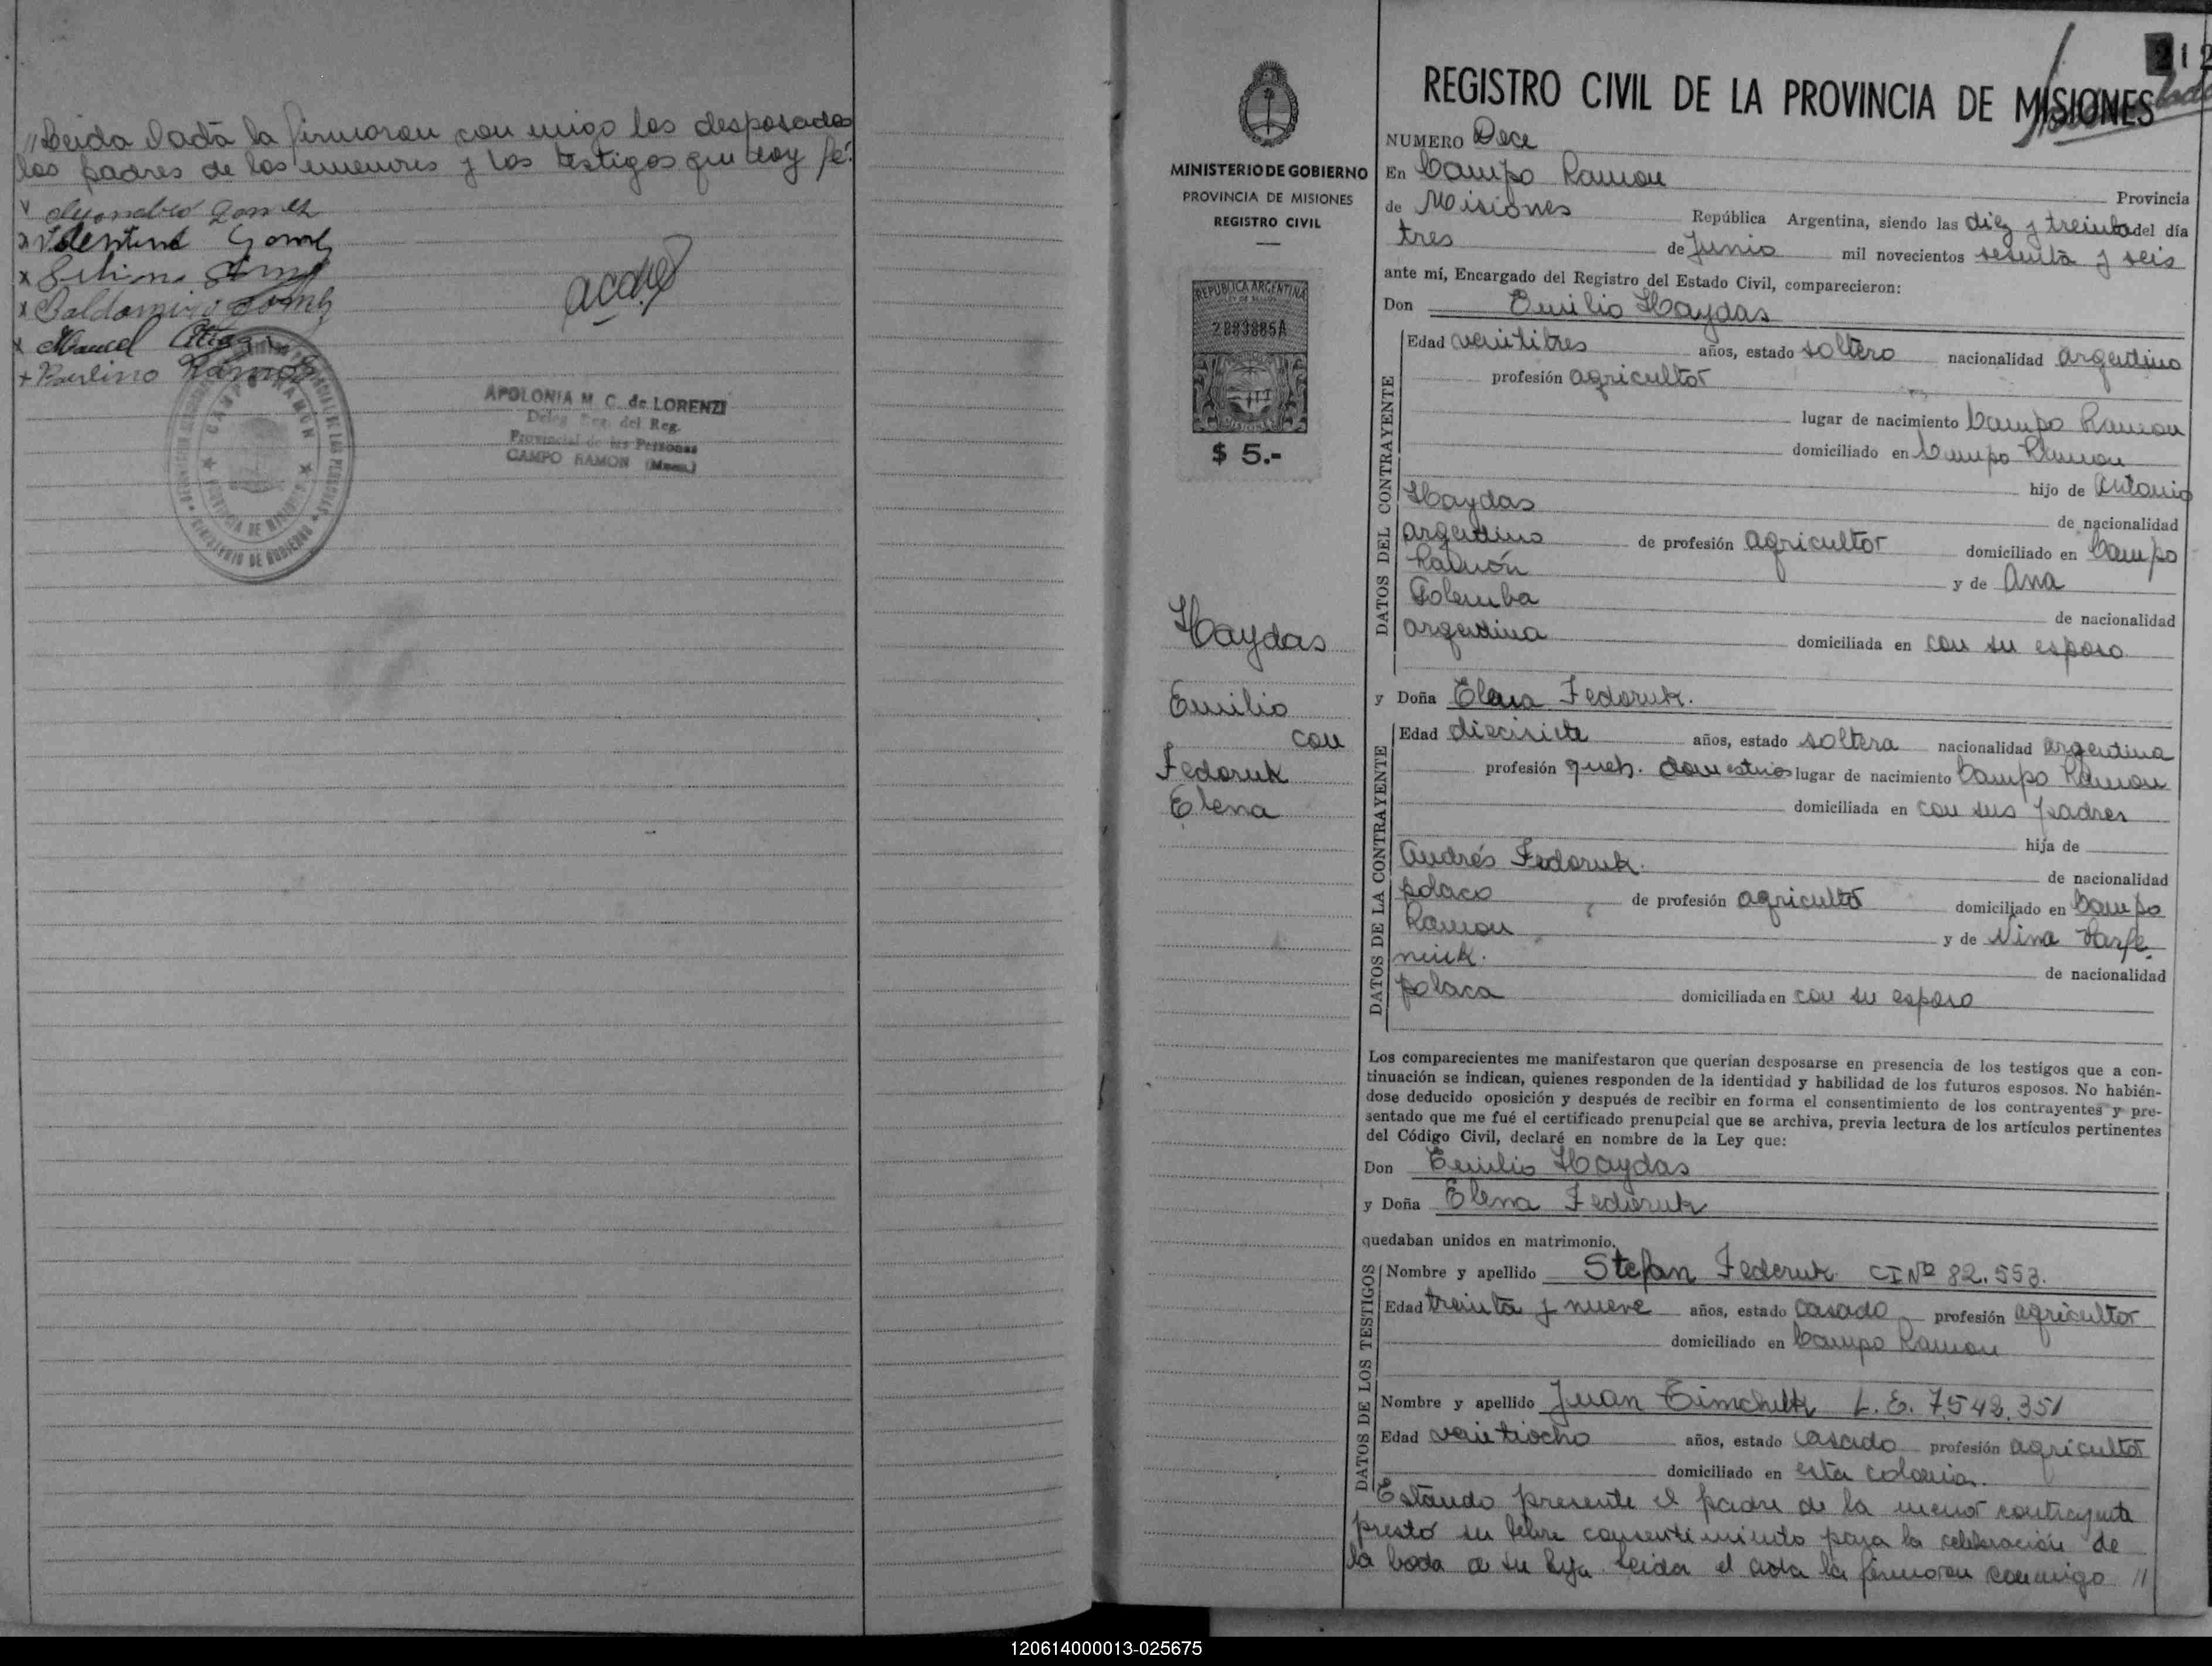 //Leida dada la firmaron con migo los desposados
los padres de los menores y los testigos que doy fé.
Valentina Gomez
Baldomiro Gomez
Manuel
+ Paulino Ramos
CAMPO RAMÓN
PROVINCIA DE MISIONES
MINISTERIO DE GOBIERNO
APOLONIA M. C. de LORENZI
Deleg. Reg. del Reg.
Provincial de las Personas
CAMPO RAMON (Mnes.)
MINISTERIO DE GOBIERNO
PROVINCIA DE MISIONES
REGISTRO CIVIL
REPUBLICA ARGENTINA
2893885A
$ 5.-
Haydas
Emilio
con
Fedoruk
Elena
212
REGISTRO CIVIL DE LA PROVINCIA DE MISIONES
NUMERO Doce
En Campo Ramon
Provincia
de Misiones República Argentina, siendo las diez y treinta del día
tres de Junio mil novecientos sesenta y seis
ante mí, Encargado del Registro del Estado Civil, comparecieron:
Don Emilio Haydas
DATOS DEL CONTRAYENTE
Edad veintitres años, estado soltero nacionalidad argentino
profesión agricultor
lugar de nacimiento Campo Ramon
domiciliado en Campo Ramon
hijo de Antonio
Haydas de nacionalidad
argentino de profesión agricultor domiciliado en Campo
Ramón y de Ana
Golemba de nacionalidad
argentina domiciliada en con su esposo
y Doña Elena Fedoruk.
DATOS DE LA CONTRAYENTE
Edad diecisiete años, estado soltera nacionalidad argentina
profesión queh. domesticos lugar de nacimiento Campo Ramon
domiciliada en con sus padres
hija de
Andrés Fedoruk. de nacionalidad
polaco de profesión agricultor domiciliado en Campo
Ramon y de Nina Parfe-
niuk. de nacionalidad
polaca domiciliada en con su esposo
Los comparecientes me manifestaron que querían desposarse en presencia de los testigos que a con-
tinuación se indican, quienes responden de la identidad y habilidad de los futuros esposos. No habién-
dose deducido oposición y después de recibir en forma el consentimiento de los contrayentes y pre-
sentado que me fué el certificado prenupcial que se archiva, previa lectura de los artículos pertinentes
del Código Civil, declaré en nombre de la Ley que:
Don Emilio Haydas
y Doña Elena Fedoruk
quedaban unidos en matrimonio.
DATOS DE LOS TESTIGOS
Nombre y apellido Stefan Federuk CI Nº 82.553.
Edad treinta y nueve años, estado casado profesión agricultor
domiciliado en Campo Ramon
Nombre y apellido Juan L. E. 7.542.351
Edad veintiocho años, estado casado profesión agricultor
domiciliado en esta colonia.
Estando presente el padre de la menor contrayente
prestó su libre consentimiento para la celebración de
la boda de su hija. Leida el acta la firmaron conmigo //
120614000013-025675